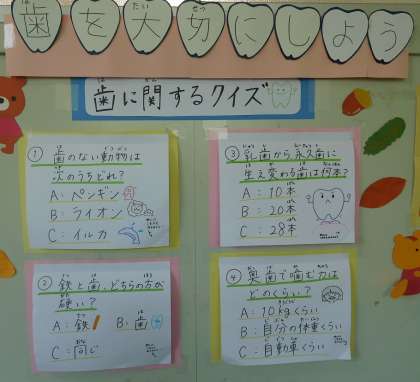 歯を大切にしよう
歯に関するクイズ
① 歯のない動物は
次のうちどれ？
A：ペンギン
B：ライオン
C：イルカ
② 鉄と歯、どちらの方が
硬い？
A：鉄 B：歯
C：同じ
③ 乳歯から永久歯に
生え変わる歯は何本？
A：10本
B：20本
C：28本
④ 奥歯で噛む力は
どのくらい？
A：10kgくらい
B：自分の体重くらい
C：自動車くらい